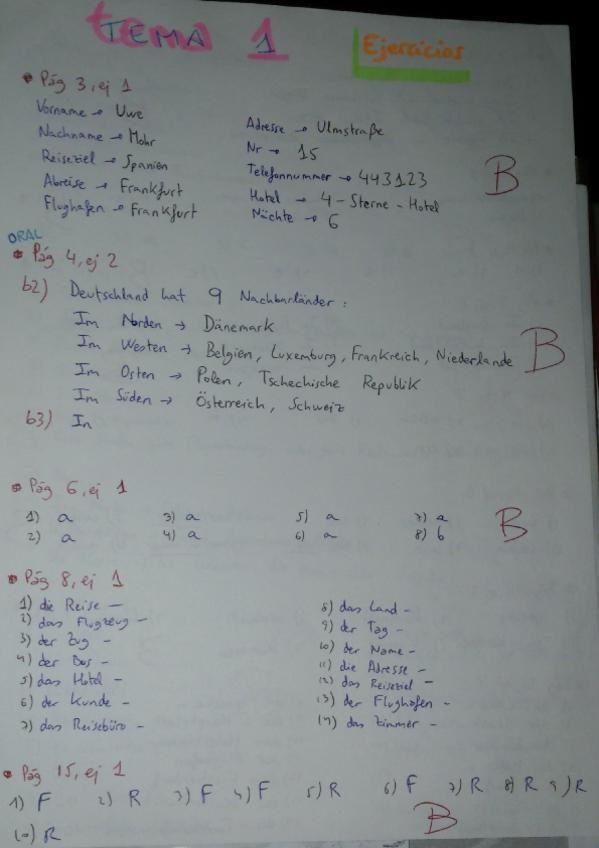 TEMA 1
Ejercicios
Pág 3, ej 1
Vorname → Uwe
Nachname → Mohr
Reiseziel → Spanien
Abreise → Frankfurt
Flughafen → Frankfurt
Adresse → Ulmstraße
Nr → 15
Telefonnummer → 443123
Hotel → 4-Sterne-Hotel
Nächte → 6
B
ORAL
Pág 4, ej 2
b2) Deutschland hat 9 Nachbarländer:
Im Norden → Dänemark
Im Westen → Belgien, Luxemburg, Frankreich, Niederlande
Im Osten → Polen, Tschechische Republik
Im Süden → Österreich, Schweiz
B
b3) In
Pág 6, ej 1
1) a 3) a 5) a 7) a
2) a 4) a 6) a 8) b
B
Pág 8, ej 1
1) die Reise -
2) das Flugzeug -
3) der Zug -
4) der Bus -
5) das Hotel -
6) der Kunde -
7) das Reisebüro -
8) das Land -
9) der Tag -
10) der Name -
11) die Adresse -
12) das Reiseziel -
13) der Flughafen -
14) das Zimmer -
Pág 15, ej 1
1) F 2) R 3) F 4) F 5) R 6) F 7) R 8) R 9) R
10) R
B